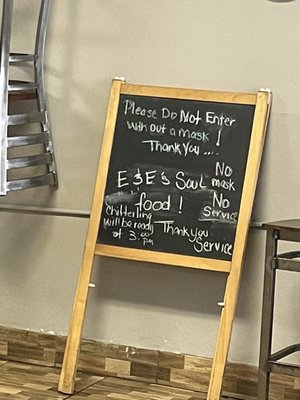 Please Do Not Enter
without a mask!
Thank you ....
E & E's Soul
food!
No
mask
No
Service
Chitterling
will be ready
at 3:00
pm
Thank you
Service